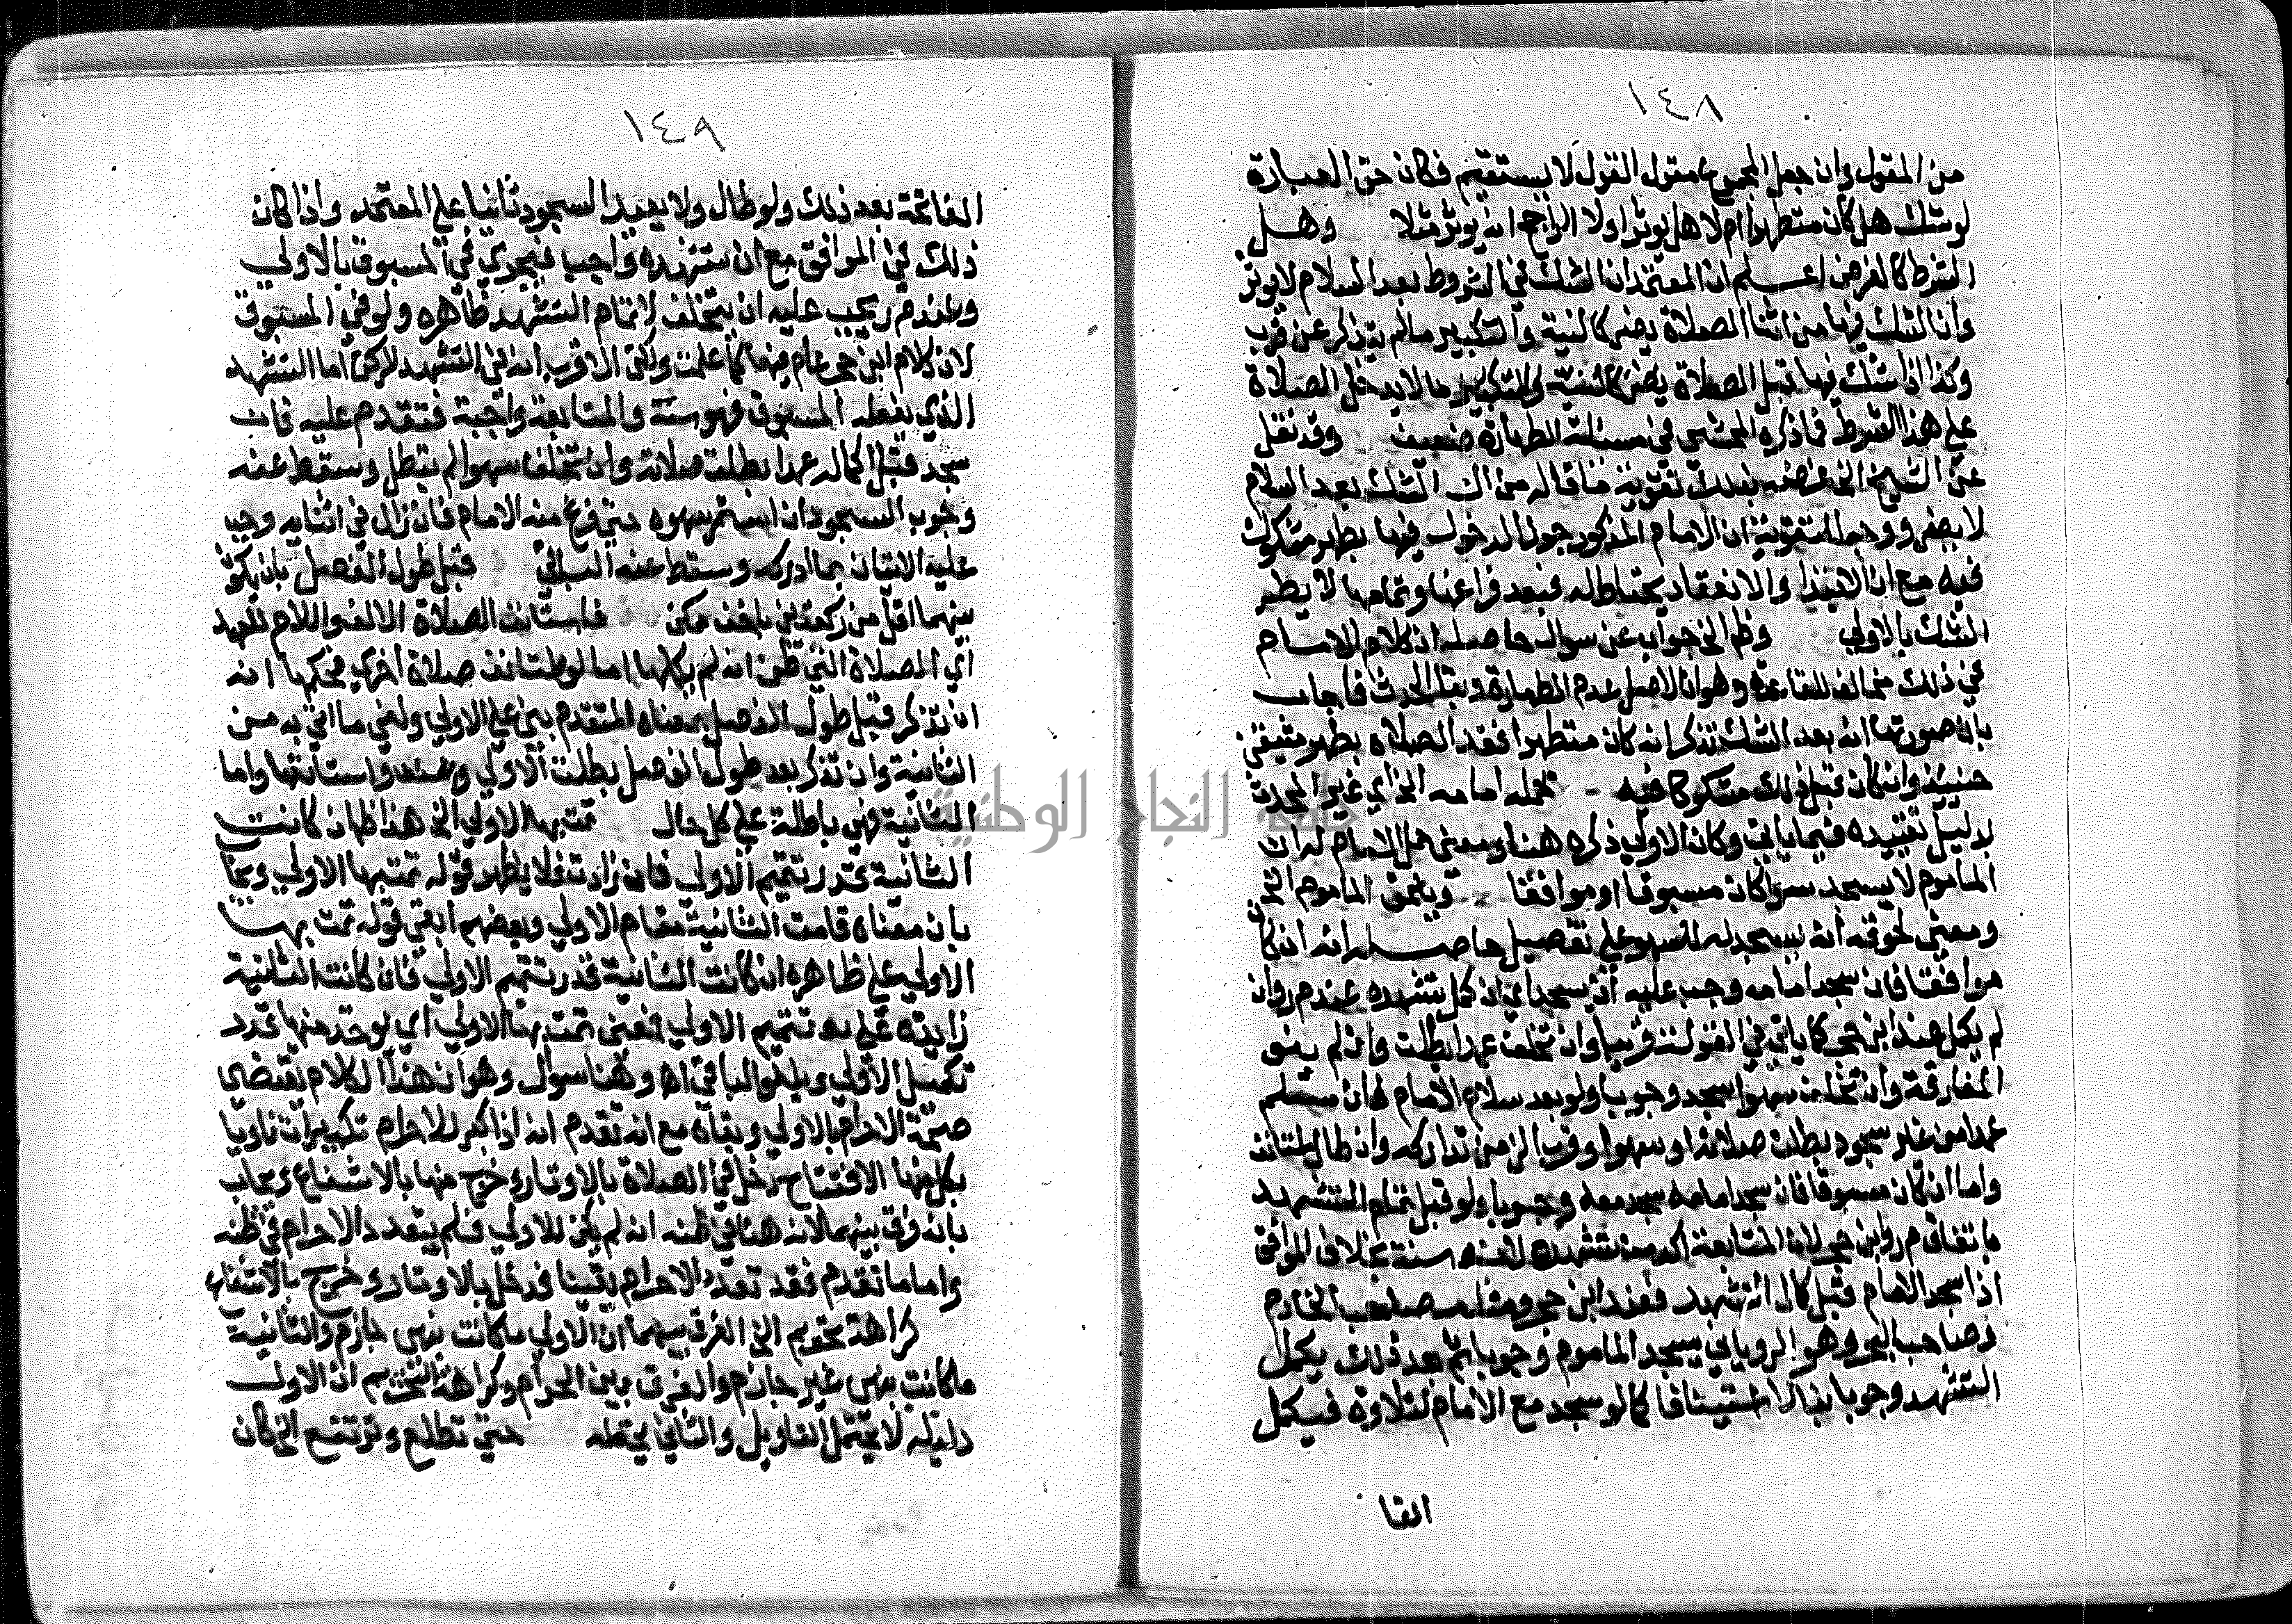 ١٤٨
من المقول وان جعل المجموع مقول القول لا يستقيم فكان حق العبارة
لو شك هل كان متطهرا ام لا هل يوثر او لا الراجح انه يوثر مثلا وهـل
الشرط كالفرض اعـلم ان المعتمد ان الشك في الشروط بعد السلام لا يوثر
وان الشك فيها من اثنا الصلاة يضر كالنية والتكبير ما لم يتذكر عن قرب
وكذا اذا شك فيها قبل الصلاة يضر كالنية والتكبير ما لا يدخل الصلاة
على هذا الشرط فما ذكره المحشى في مسئلة الطهارة ضعيف وقد نقل
عن الشيخ الخ غرضه بذلك تقوية ما قاله من ان الشك بعد السلام
لا يضر ووجه التقوية ان الامام المذكور جوز الدخول فيها بطهر مشكوك
فيه مع ان الابتدا والانعقاد يحتاط له فبعد فراغها وتمامها لا يضر
الشك بالاولي وظ الخ جواب عن سوال حاصله ان كلام الامـام
في ذلك مخالف للقاعدة وهو ان الاصل عدم الطهارة وبقا الحدث فاجاب
بان صورتها انه بعد الشك تذكر انه كان متطهرا فعقد الصلاة بطهر متيقن
حينئذ وان كان قبل ذلك مشكوكا فيه تحمله امامه الخ اي غير المحدث
بدليل تقييده فيما ياتي وكان الاولي ذكره هنا ومعنى حمل الامام له ان
الماموم لا يسجد سوا كان مسبوقا او موافقا ويلحق الماموم الخ
ومعنى لحوقه انه يسجد له للسهو على تفصيل حاصـله انه ان كان
موافقا فان سجد امامه وجب عليه ان يسجد اي ان كمل تشهده عند م ر وان
لم يكمل عند ابن حجر كما ياتي في القولة قريبا وان تخلف عمدا بطلت وان لم ينو
المفارقة وان تخلف سهوا سجد وجوبا ولو بعد سلام الامام فان سـلم
عمدا من غير سجود بطلت صلاته او سهوا وقرب الزمن تداركه وان طال بطلت
واما ان كان مسبوقا فان سجد امامه سجد معه وجوبا ولو قبل تمام التشهد
باتفاق م ر وابن حجر لان المتابعة اكد من تشهده لانه سنة بخلاف الموافق
اذا سجد الامام قبل كمال التشهد فعند ابن حجر ومثله صاحب الخادم
وصاحب البحر وهو الروياني يسجد الماموم وجوبا ثم بعد ذلك يكمل
التشهد وجوبا بنا لا استينافا كما لو سجد مع الامام لتلاوة فيكمل
الفا
١٤٩
الفاتحة بعد ذلك ولو طال ولا يعيد السجود ثانيا على المعتمد واذا كان
ذلك في الموافق مع ان تشهده واجب فيجري في المسبوق بالاولي
وعند م ر يجب عليه ان يتخلف لاتمام التشهد ظاهره ولو في المسبوق
لان كلام ابن حجر عام فيهما كما علمت ولكن الاقرب انه في التشهد لركن اما التشهد
الذي يفعله المسبوق فهو سنة والمتابعة واجبة فتقدم عليه فان
سجد قبل اكماله عمدا بطلت صلاته وان تخلف سهوا لم تبطل وسقط عنه
وجوب السجود ان استمر سهوه حتى فرغ منه الامام فان زال في اثنايه وجب
عليه الاتيان بما ادركه وسقط عنه الباقي قبل طول الفصل بان يكون
بينهما اقل من ركعتين باخف ممكن فاستانف الصلاة الالف واللام للعهد
اي الصلاة التي ظن انه لم يكملها اما لو استانف صلاة اخري فحكمها انه
ان تذكر قبل طول الفصل بمعناه المتقدم بنى على الاولي ولغى ما اتى به من
الثانية وان تذكر بعد طول الفصل بطلت الاولي واستانفها واما
الثانية فهي باطلة على كل حال تمت بها الاولي الخ هذا ظاهر ان كانت
الثانية قدر تتميم الاولي فان زادت فلا يظهر قوله تمت بها الاولي ويجاب
بان معناه قامت الثانية مقام الاولي وبعضهم ابقى قوله تمت بهـا
الاولي على ظاهره ان كانت الثانية قدر تتميم الاولي فان كانت الثانية
زايدة على تتميم الاولي فمعنى تمت بها الاولي اي يوخذ منها قدر
تكميل الاولي ويلغو الباقي اه وهنا سوال وهو ان هذا الكلام يقتضي
صحة الاحرام بالاولي وبقاه مع انه تقدم انه اذا كبر للاحرام تكبيرات ناويا
بكل منها الافتتاح دخل في الصلاة بالاوتار وخرج منها بالاشفاع ويجاب
بانه فرق بينهما لانه هنا في ظنه انه لم يكن للاولي فلم يتعدد الاحرام في ظنه
واما ما تقدم فقد تعدد الاحرام يقينا فدخل بالاوتار وخرج بالاشفاع
كراهة تحريم الخ الفرق بينهما ان الاولي ما كانت بنهي جازم والثانية
ما كانت بنهي غير جازم والفرق بين الحرام وكراهة التحريم ان الاول
دليله لا يحتمل التاويل والثاني يحتمله حتى تطلع وترتفع الخ كان